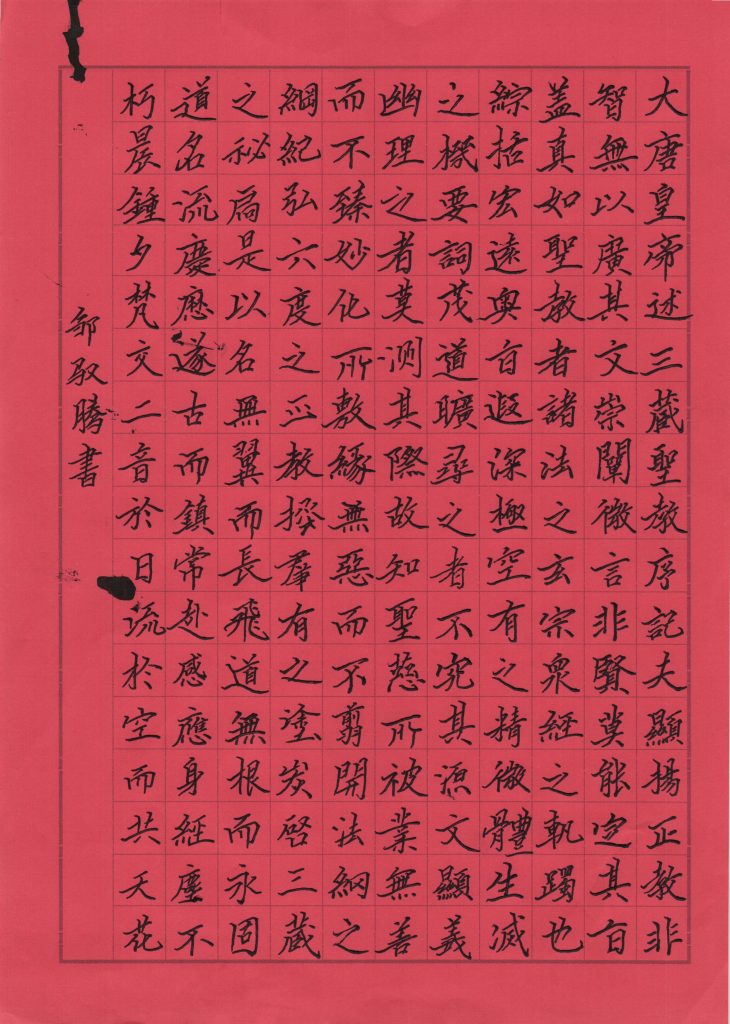 大唐皇帝述三藏聖教序記夫顯揚正教非
智無以廣其文崇闡微言非賢莫能定其旨
盖真如聖教者諸法之玄宗衆經之軌躅也
綜括宏遠奥旨遐深極空有之精微體生滅
之機要詞茂道曠尋之者不究其源文顯義
幽理之者莫測其際故知聖慈所被業無善
而不臻妙化所敷緣無惡而不翦開法網之
綱紀弘六度之正教拯羣有之塗炭啓三藏
之秘扃是以名無翼而長飛道無根而永固
道名流慶歷遂古而鎮常赴感應身經塵不
朽晨鍾夕梵交二音於日流於空而共天花
邹驭腾書